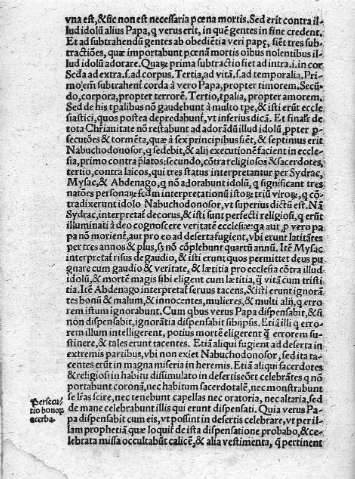 vna est, & sic non est necessaria pœna mortis. Sed erit contra il-
lud idolũ alius Papa, q verus erit, in quẽ gentes in fine credent.
Et ad subtrahendũ gentes ab obediẽtia veri papę, fiẽt tres sub-
tractiões, quæ importabunt pœnã mortis oĩbus nolentibus il-
lud idolũ adorare. Quaꝝ prima subtractio fiet ad intra .i. in cor.
Scḋa ad extra .s. ad corpus. Tertia, ad vitã .s. ad temporalia. Pri-
mo em̃ subtrahent̃ corda à vero Papa, propter timorem. Secũ-
do, corpora, propter terrorẽ. Tertio, tp̃alia, propter amorem.
Sed de his tp̃alibus nõ gaudebunt à multo tp̃e, & isti erũt eccle
siastici, quos postea deprędabunt̃, vt inferius dicã. Et finaľr de
tota Chr̃ianitate nõ restabunt ad adorãdũ illud idolũ ꝓpter ꝑ-
secutões & tormẽta, quæ à sex principibus fiẽt, & septimus erit
Nabuchodonosor, q sedebit, & alij executionẽ facient in eccle-
sia, primo contra p̃latos: secundo, cõtra religiosos & sacerdotes,
tertio, contra laicos, qui tres status interpretantur per Sydrac,
Mysac, & Abdenago, q nõ adorabunt idolũ, q significant tres
natões personaꝝ secdm interpretationũ istoꝝ triũ viroꝝ, q cõ-
tradixerunt idolo Nabuchodonosor, vt superius dictũ est. Nã
Sydrac, interpretat̃ decorus, & isti sunt perfecti religiosi, q erũt
illuminati à deo cognoscere veritatẽ ecclesię: q̃a aut̃ ꝓ vero pa
pa nõ morient̃, aut pro eo ad deserta fugient, vbi erunt latitãres
per tres annos & plus, sʒ nõ cõplebunt quartũ annũ. Itẽ Mysac
interpretat̃ risus de gaudio, & isti erunt quos permittet deus pu
gnare cum gaudio & veritate, & lætitia pro ecclesia cõtra illud
idolũ, & mortẽ magis sibi eligent cum lætitia, q̃ vitã cum tristi
tia. Itẽ Abdenago interpretat̃ seruus tacens, & isti erunt ignorã-
tes bonũ & malum, & innocentes, mulieres, & multi alij, q erro
rem istum ignorabunt. Cum qbus verus Papa dispensabit, & si
non dispensabit, ignorãtia dispensabit sibiip̃sis. Etiã illi q erro-
rem illum intelligerent, potius mortẽ eligerent q̃ errorem su-
stinere, & tales erunt tacentes. Etiã aliqui fugient ad deserta in
extremis partibus, vbi non exiet Nabuchodonosor, sed ita ta-
centes erũt in magna miseria in heremis. Etiã aliqui sacerdotes
& religiosi in habitu dissimulato in desertis eõrt celebrãtes q nõ
portabunt coronã, nec habitum sacerdotalẽ, nec monstrabunt
se l̃ras scire, nec tenebunt capellas nec oratoria, nec altaria, sed
de mane celebrabunt illis qui erunt dispensati. Quia verus Pa-
pa dispensabit cum eis, vt possint in desertis celebrare, vt per il-
lam prophetiã quæ loquit̃ de ista dispensatione probabo, & ce-
lebrata missa occultabũt calicẽ, & alia vestimenta, q̃ pertinent
Persecu-
tio bonoꝝ
acerba.